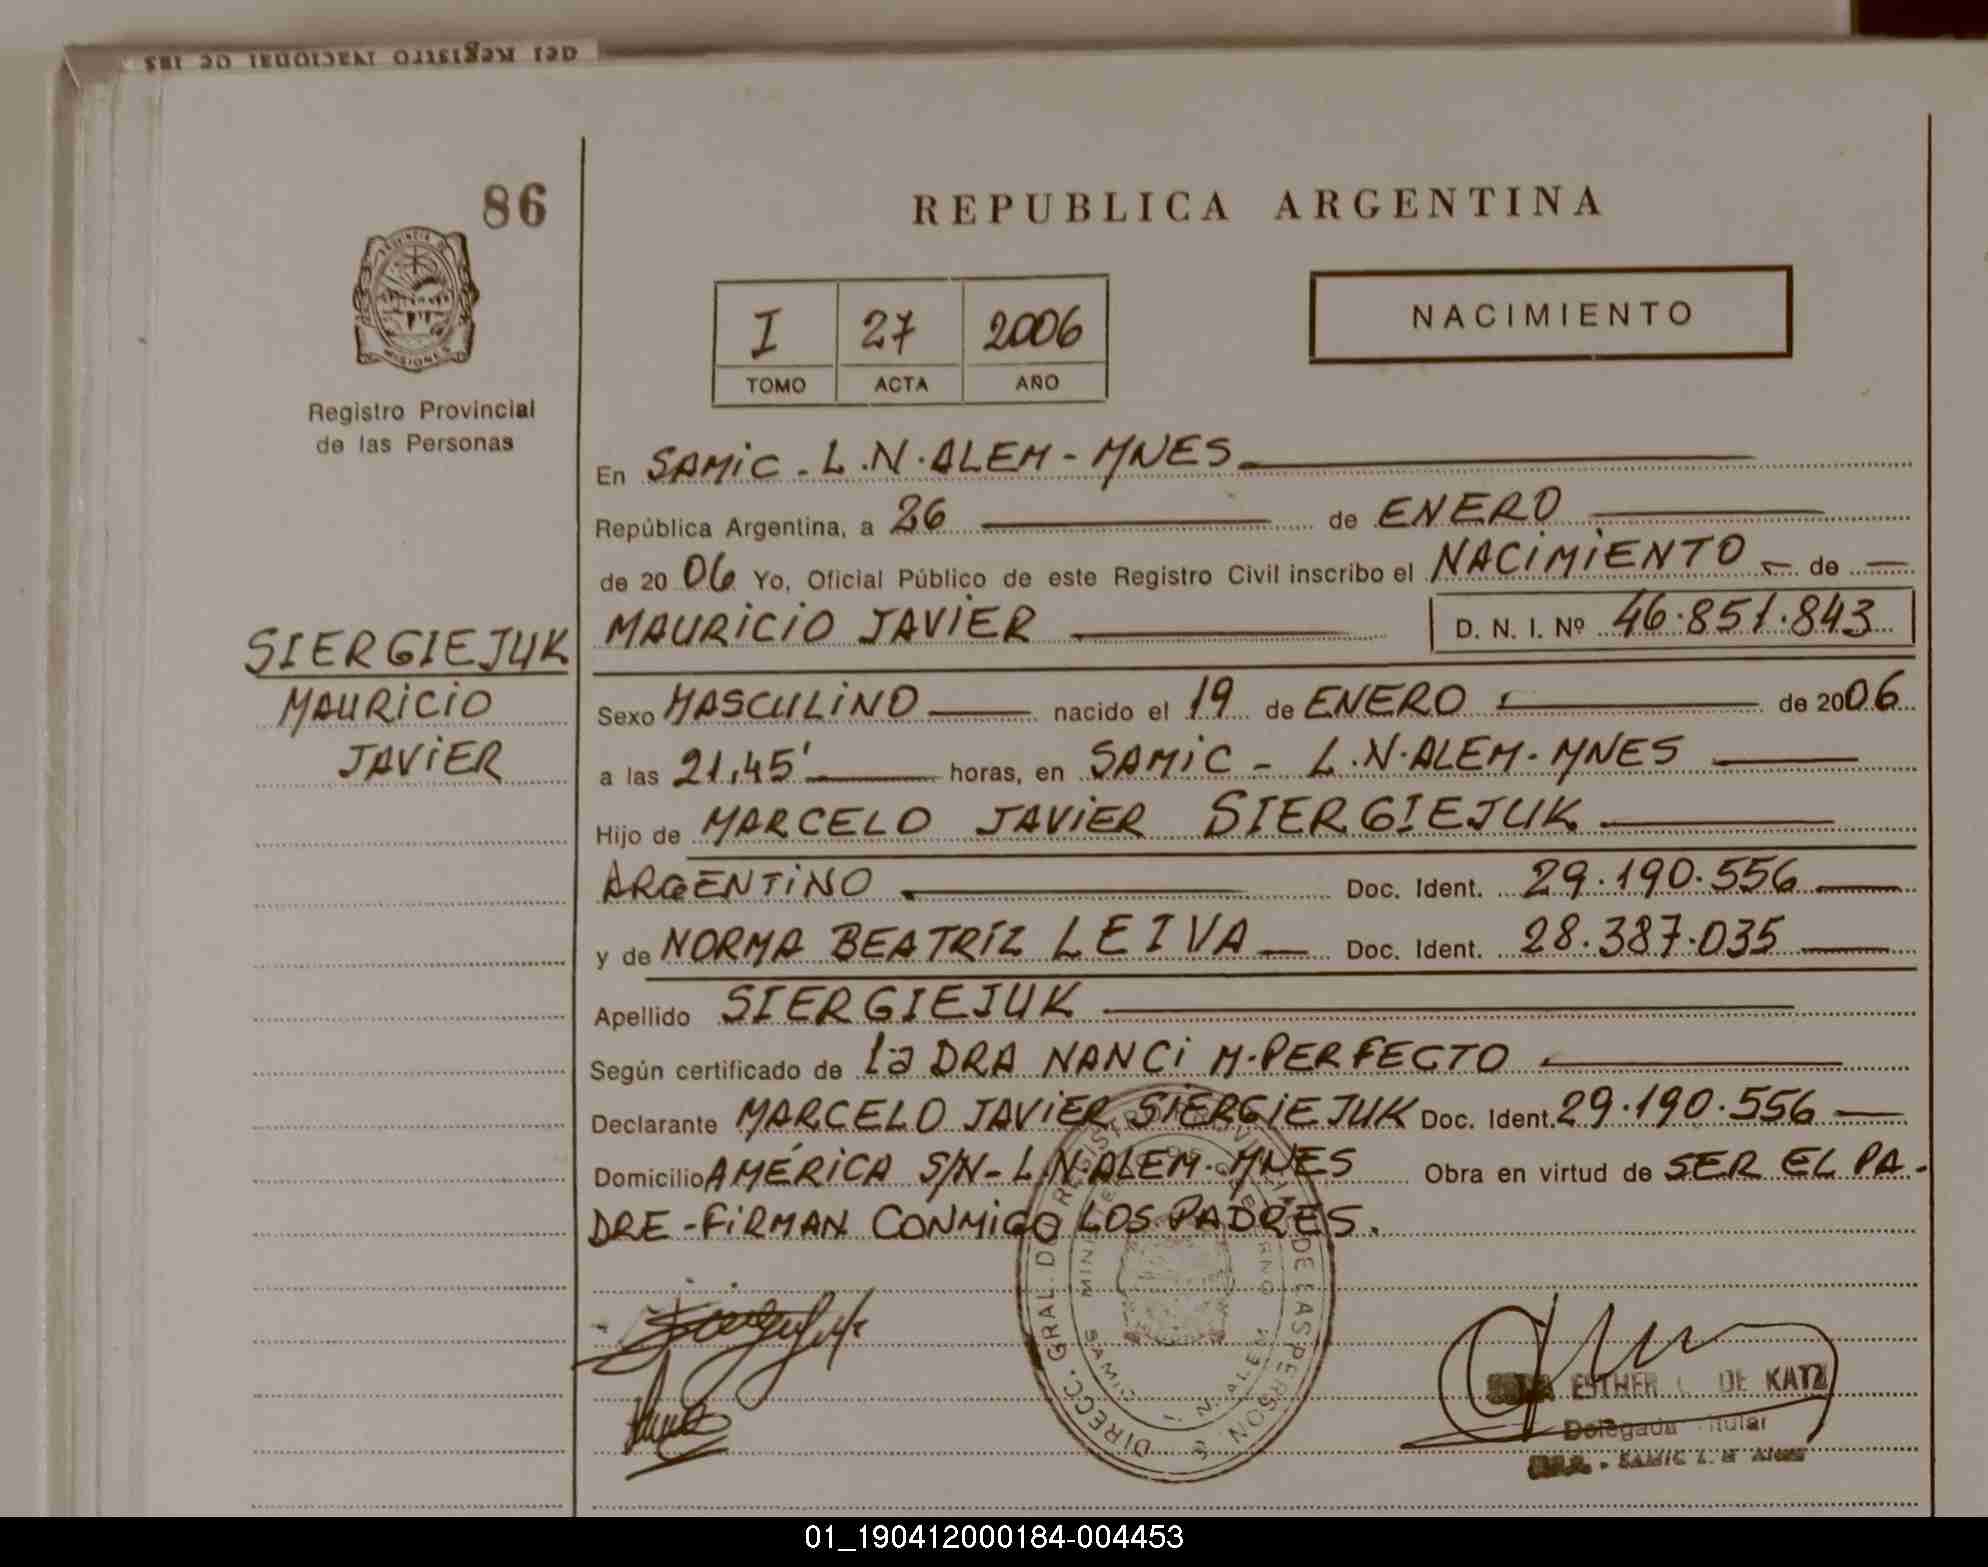 del Registro Nacional de las
86
REPUBLICA ARGENTINA
PROVINCIA DE
MISIONES
I 27 2006
TOMO ACTA AÑO
NACIMIENTO
Registro Provincial
de las Personas
En SAMiC - L.N.ALEM - MNES
República Argentina, a 26 de ENERO
de 20 06 Yo, Oficial Público de este Registro Civil inscribo el NACiMiENTO de
MAURiCiO JAViER D. N. I. Nº 46.851.843
SIERGIEJUK
MAURiCiO
JAViER
Sexo MASCULiNO nacido el 19 de ENERO de 2006
a las 21,45' horas, en SAMiC - L.N.ALEM - MNES
Hijo de MARCELO JAViER SIERGIEJUK
ARGENTiNO Doc. Ident. 29.190.556
y de NORMA BEATRiZ LEIVA Doc. Ident. 28.387.035
Apellido SIERGIEJUK
Según certificado de la DRA NANCi M.PERFECTO
Declarante MARCELO JAViER SiERGiEJUK Doc. Ident. 29.190.556
Domicilio AMÉRiCA S/N - L.N.ALEM - MNES Obra en virtud de SER EL PA-
DRE - FiRMAN CONMiGO LOS PADRES.
DIRECC. GRAL. DE REGISTRO PROVINCIAL DE LAS PERSONAS
SAMIC L. N. ALEM
ESTHER DE KATZ
Delegada Titular
SAMIC L. N. Alem
01_190412000184-004453